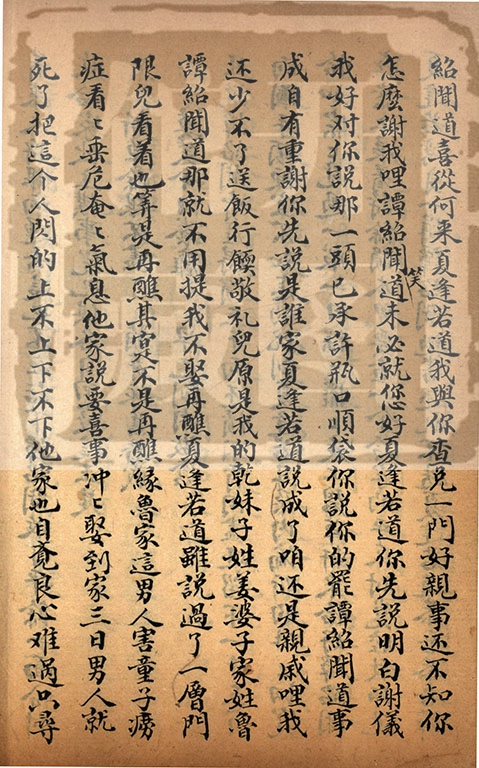 紹聞道喜從何来夏逢若道我與你查兑一門好親事还不知你
怎麽謝我哩譚紹聞笑道未必就恁好夏逢若道你先説明白謝儀
我好对你説那一頭已承許瓶口順袋你説你的罷譚紹聞道事
成自有重謝你先説是誰家夏逢若道説成了咱还是親戚哩我
还少不了送飯行餪敬礼兒原是我的乾妹子姓姜婆子家姓魯
譚紹聞道那就不用提我不娶再醮夏逢若道雖説過了一層門
限兒看着也筭是再醮其寔不是再醮緣魯家這男人害童子癆
症看〻垂危奄〻氣息他家説要喜事冲〻娶到家三日男人就
死了把這个人閃的上不上下不下他家也自覺良心难過只尋